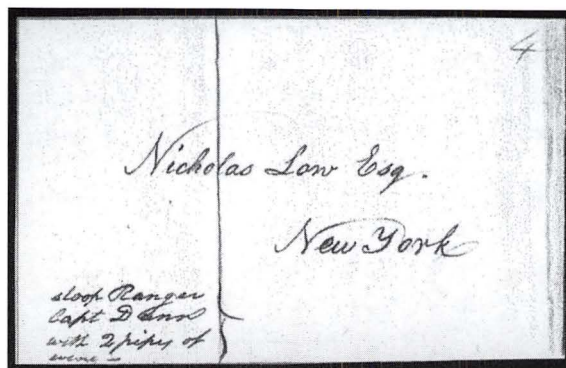 4
Nicholas Low Esq.
New York
sloop Ranger
Capt Denn
with 2 pipes of
wine –